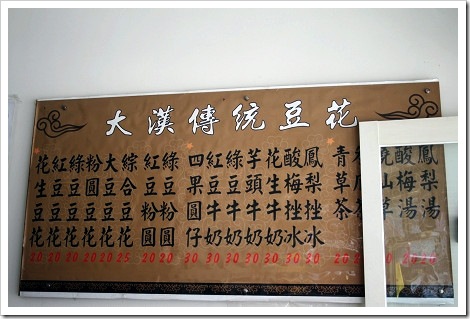 大漢傳統豆花
花生豆花 20
紅豆豆花 20
綠豆豆花 20
粉圓豆花 20
大豆豆花 20
綜合豆花 25
紅豆粉圓 20
綠豆粉圓 20
四果圓仔 30
紅豆牛奶 30
綠豆牛奶 30
芋頭牛奶 30
花生牛奶 30
酸梅挫冰 30
鳳梨挫冰 30
青草茶 20
酸梅湯 20
鳳梨湯 20